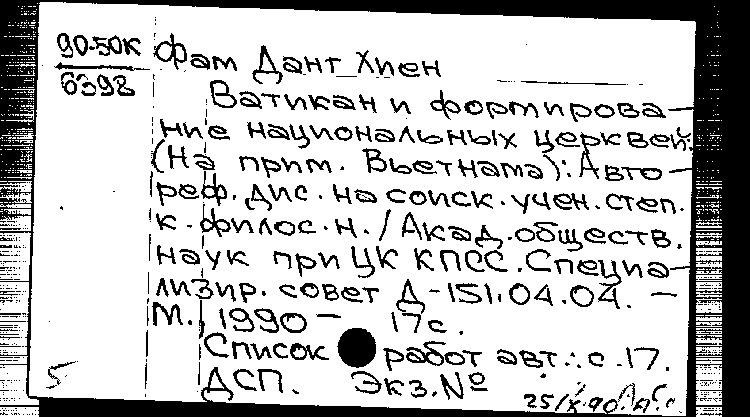 90-50К
6398
Фам Данг Хиен
Ватикан и формирова-
ние национальных церквей:
(На прим. Вьетнама): Авто-
реф. дис. на соиск. учен. степ.
к. филос. н. / Акад. обществ.
наук при ЦК КПСС. Специа-
лизир. совет Д-151.04.04. —
М., 1990 — 17 с.
Список работ авт.: с. 17.
ДСП. Экз. №
5
25/X-90